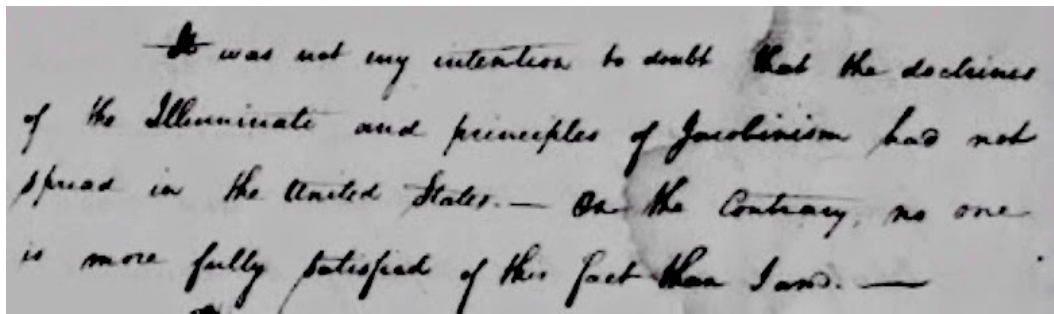 It was not my intention to doubt that the doctrines
of the Illuminati and principles of Jacobinism had not
spread in the United States. — On the Contrary, no one
is more fully satisfied of this fact than I am. —